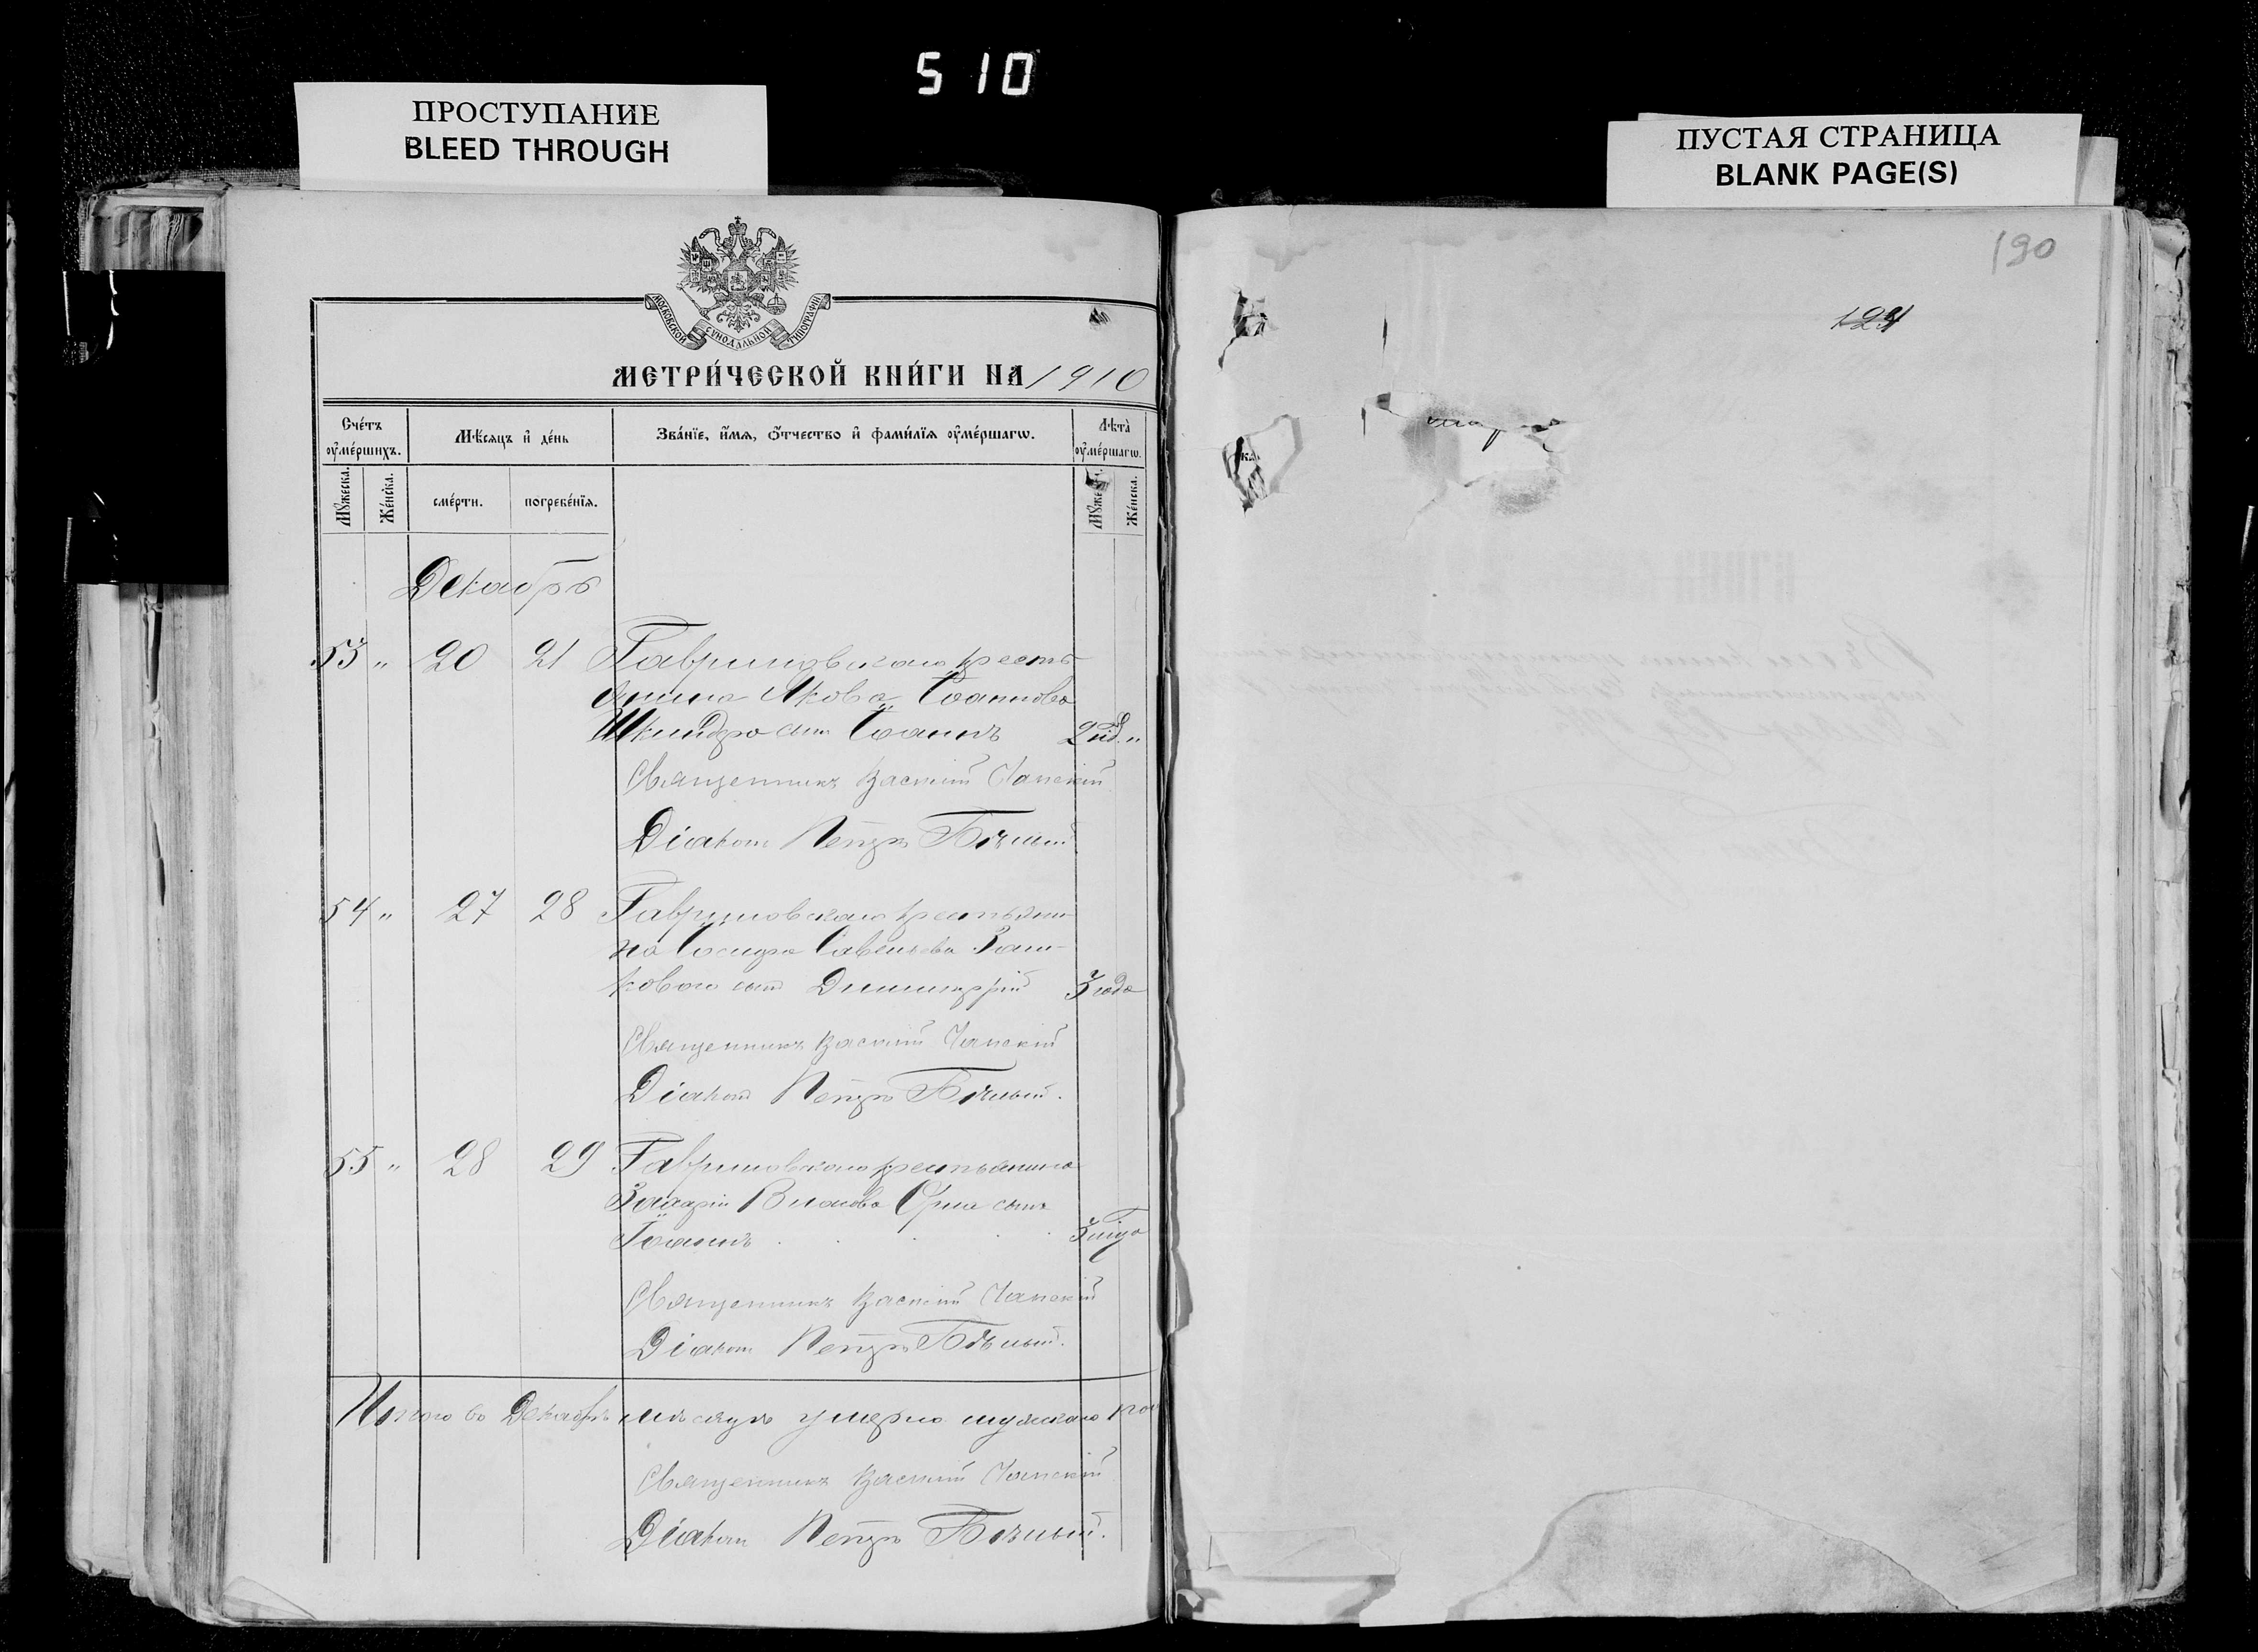 510
ПРОСТУПАНИЕ
BLEED THROUGH
ПУСТАЯ СТРАНИЦА
BLANK PAGE(S)
190
124
МОСКОВСКОЙ СУНОДАЛЬНОЙ ТИПОГРАФІИ
МЕТРИ́ЧЕСКОЙ КНИ́ГИ НА 1910
Сче́тъ оу҆ме́ршихъ.
Мѣ́сяцъ и҆ де́нь
Зва́нїе, и҆́мѧ, ѻ҆́тчество и҆ фами́лїѧ оу҆ме́ршагѡ.
Лѣта̀ оу҆ме́ршагѡ.
Мꙋ́жеска.
Же́нска.
сме́рти.
погребе́нїѧ.
Же́нска.
Декабрь
53 " 20 21 Гавриловскаго кресть
янина Якова Іоаннова
Шкиндра сынъ Іоаннъ
Священникъ Василій
Діаконъ Петръ
54 " 27 28 Гавриловскаго крестьяни-
на Іосифа Савельева
коваго сынъ Димитрій 3 года
Священникъ Василій
Діаконъ Петръ
55 " 28 29 Гавриловскаго крестьянина
Захарія Власова сынъ
Іоаннъ 3 года
Священникъ Василій
Діаконъ Петръ
Итого въ Декабрѣ мѣсяцѣ умерло мужскаго
Священникъ Василій
Діаконъ Петръ